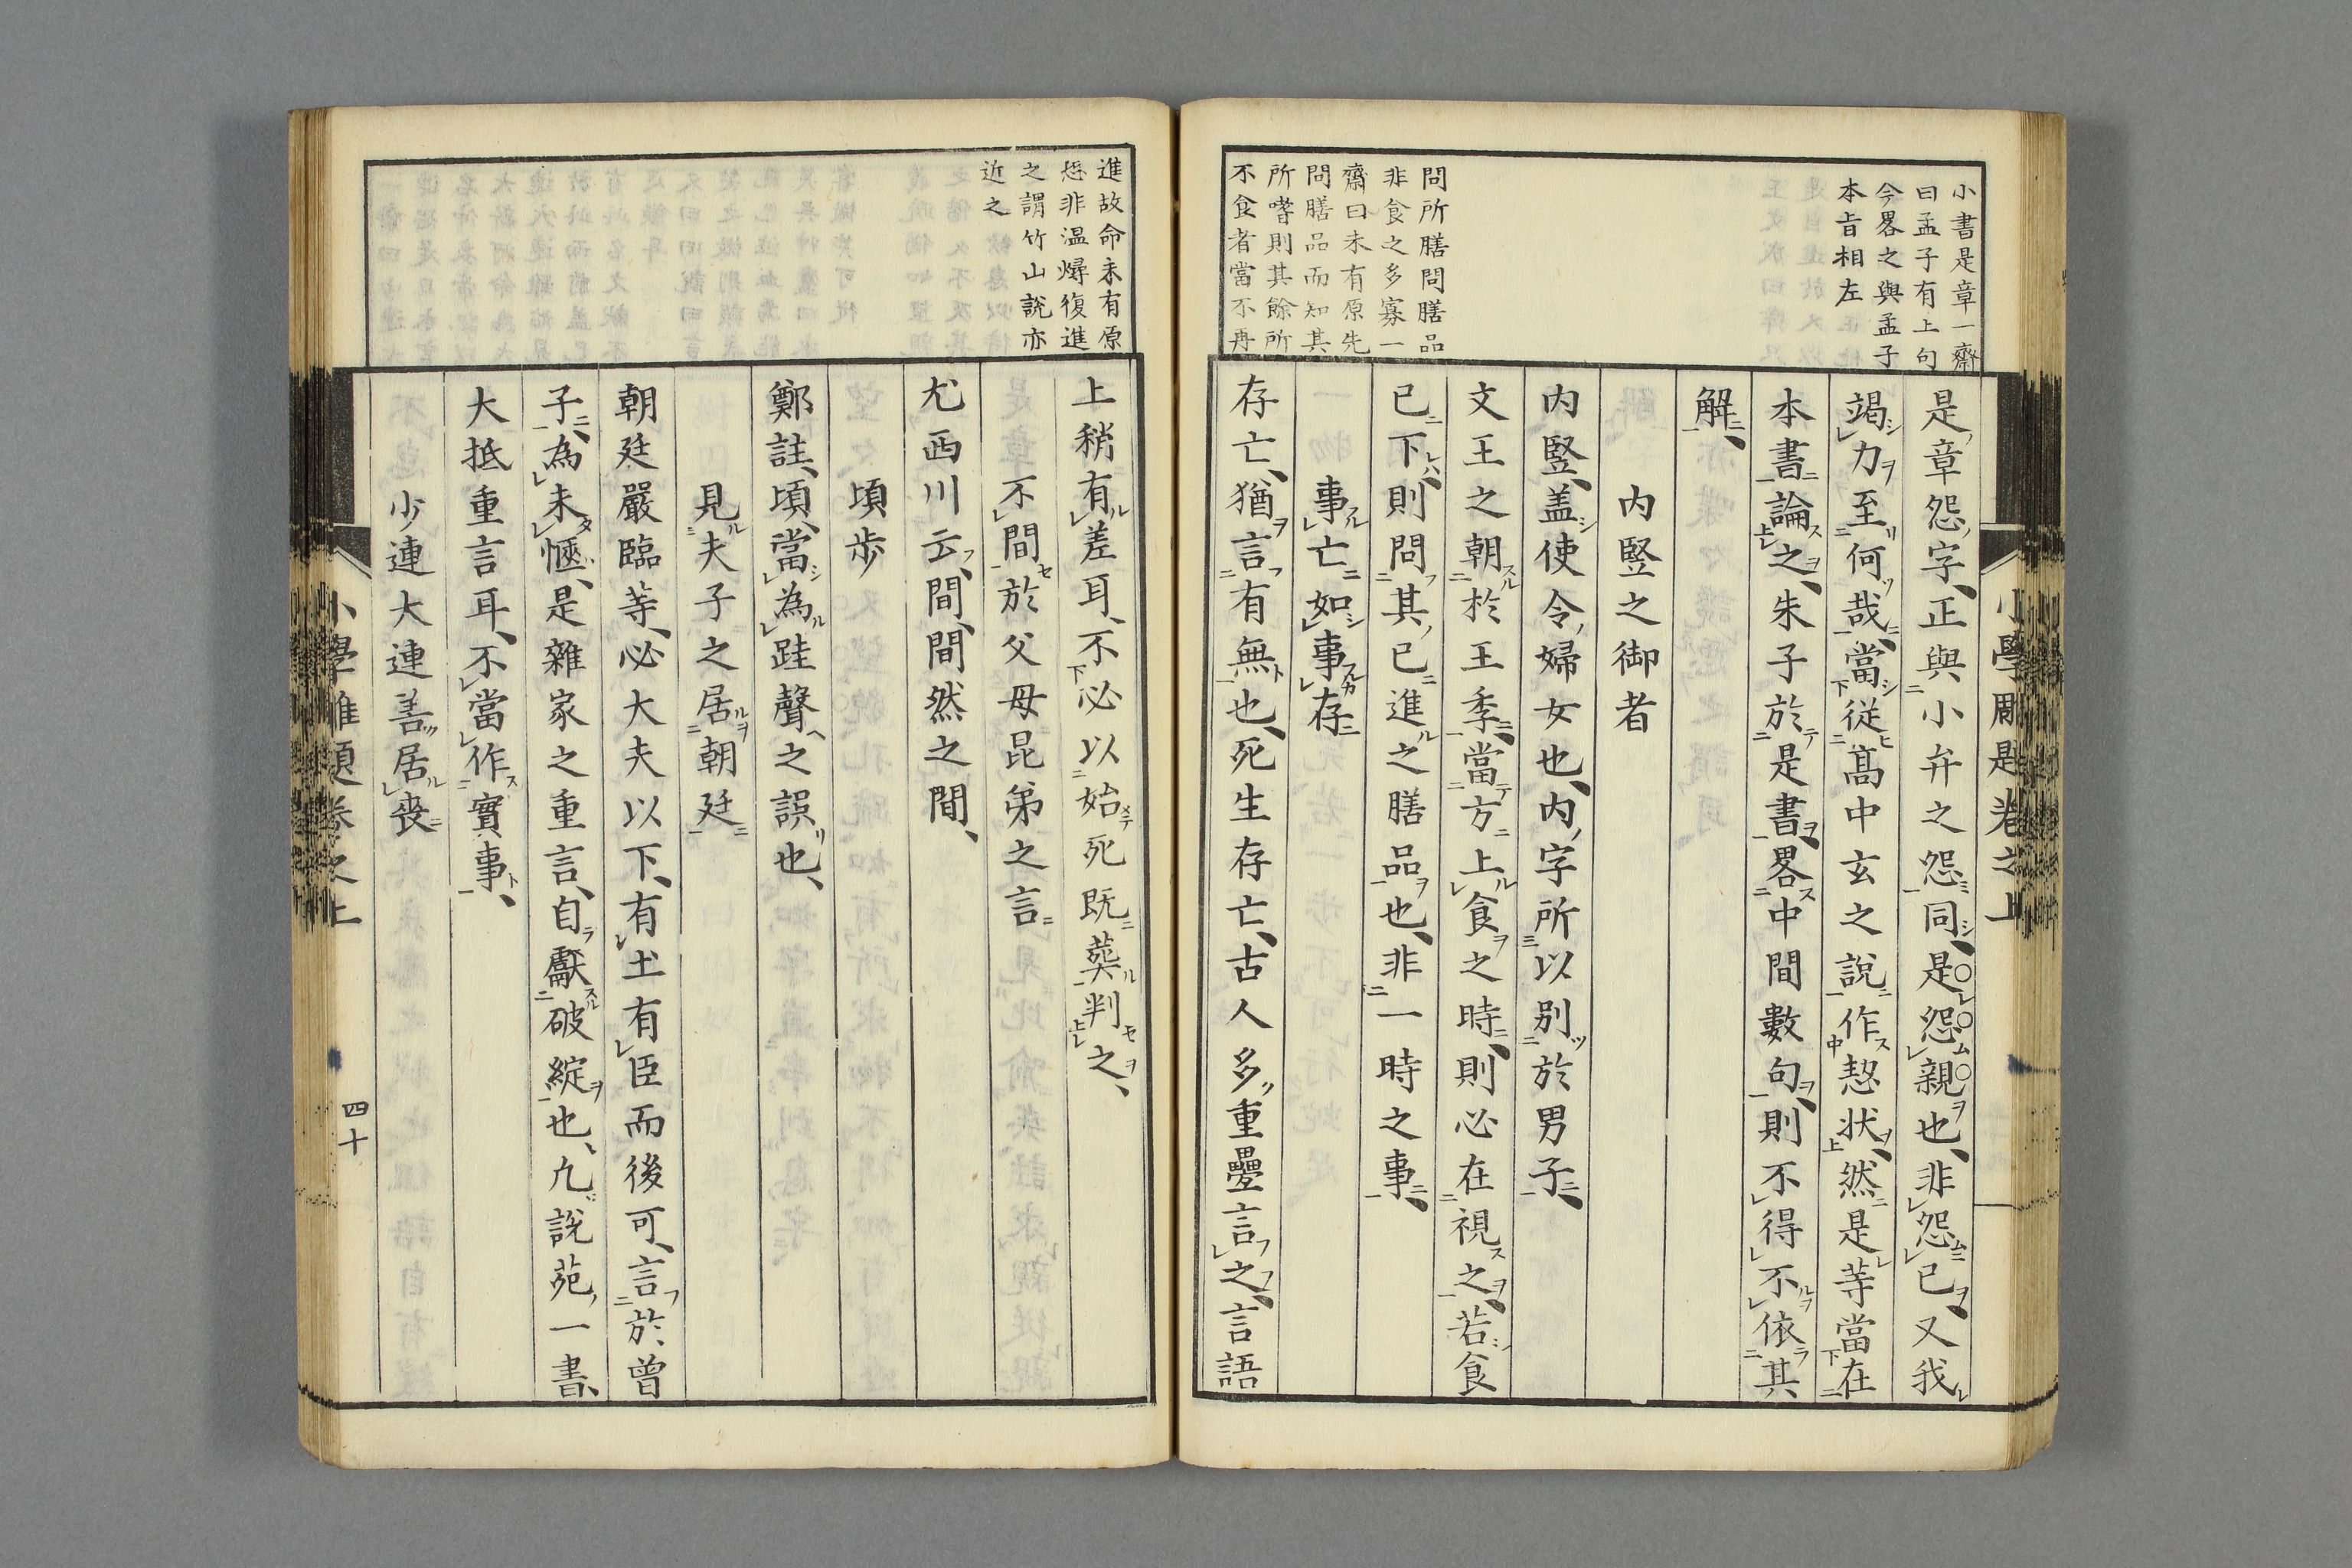 小書是章一齋
曰孟子有上句
今畧之與孟子
本旨相左
問所膳問膳品
非食之多寡一
齋曰未有原先
問膳品而知其
所嗜則其餘所
不食者當不再
是章怨字正與小弁之怨同是怨親也非怨已又我
竭力至何哉當從髙中玄之說作愬状然是等當在
本書論之朱子於是書畧中間數句則不得不依其
解
内竪之御者
内竪盖使令婦女也内字所以別於男子
文王之朝於王季當方上食之時則必在視之若食
已下則問其已進之膳品也非一時之事
事亡如事存
存亡猶言有無也死生存亡古人多重疊言之言語
進故命未有原
恐非温燖復進
之謂竹山說亦
近之
上稍有差耳不必以始死既葬判之
不間於父母昆弟之言
尤西川云間間然之間
頃歩
鄭註頃當為跬聲之誤也
見夫子之居朝廷
朝廷嚴臨等必大夫以下有士有臣而後可言於曾
子為未愜是雜家之重言自獻破綻也凢說苑一書
大抵重言耳不當作實事
少連大連善居喪
四十